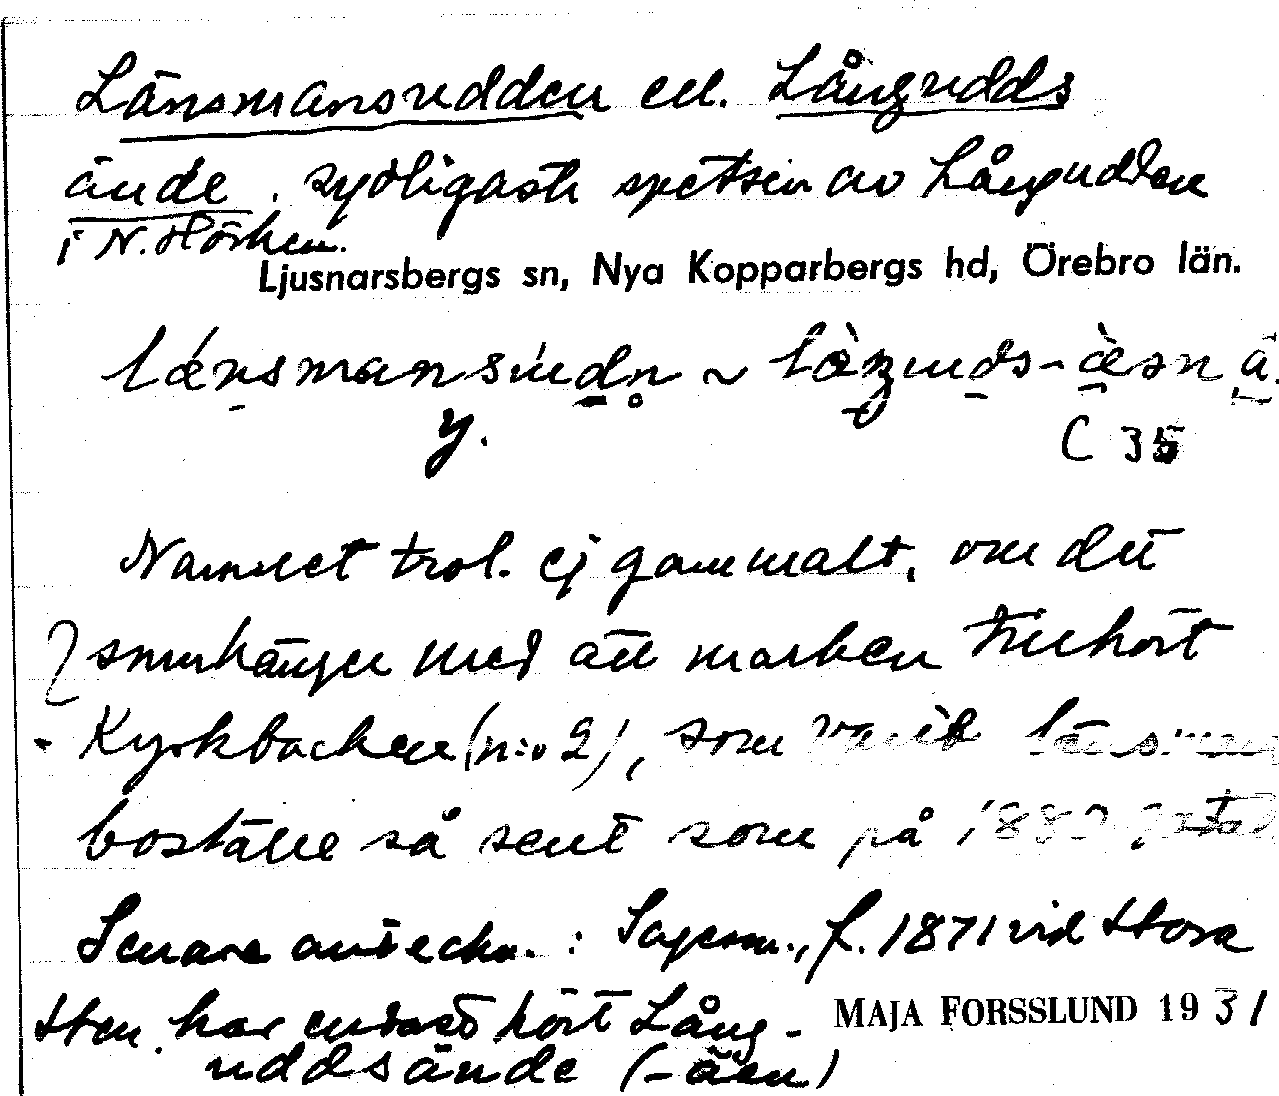 Länsmansudden el. Långudds
ände. sydligaste spetsen av Långudden
i N. Hörken.
Ljusnarsbergs sn, Nya Kopparbergs hd, Örebro län.
y.
C 35
Namnet trol. ej gammalt, om det
smnhänger med att marken tillhört
Kyrkbacken (n:o 2), som varit länsmans
boställe så sent som på
Senare anteckn.: Sagesm., f. 1871 vid Hora
Hen. har endast hört Lång-
uddsände (-äen)
MAJA FORSSLUND 1931